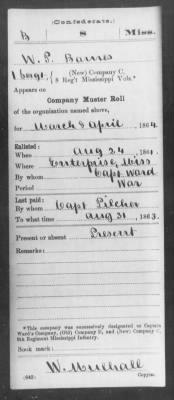 (Confederate.)
B 8 Miss.
W. P. Barnes
1 Sergt. (New) Company C,
8 Reg't Mississippi Vols.*
Appears on
Company Muster Roll
of the organization named above,
for March & April, 1864.
Enlisted:
When Aug 24, 1861.
Where Enterprise, Miss
By whom Capt Ward
Period War
Last paid:
By whom Capt Pilcher
To what time Aug 31, 1863.
Present or absent Present
Remarks:
*This company was successively designated as Captain
Ward's Company, (Old) Company D, and (New) Company C,
8th Regiment Mississippi Infantry.
Book mark:
W. Mulhall
(642) Copyist.